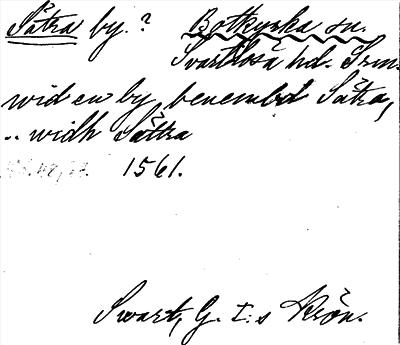 Sätra by. ? Botkyrka sn.
Svartlösa hd. Srm.
wid en by benembd Sätra,
.. widh Sättra
1561.
Swart, G. I:s Krön.